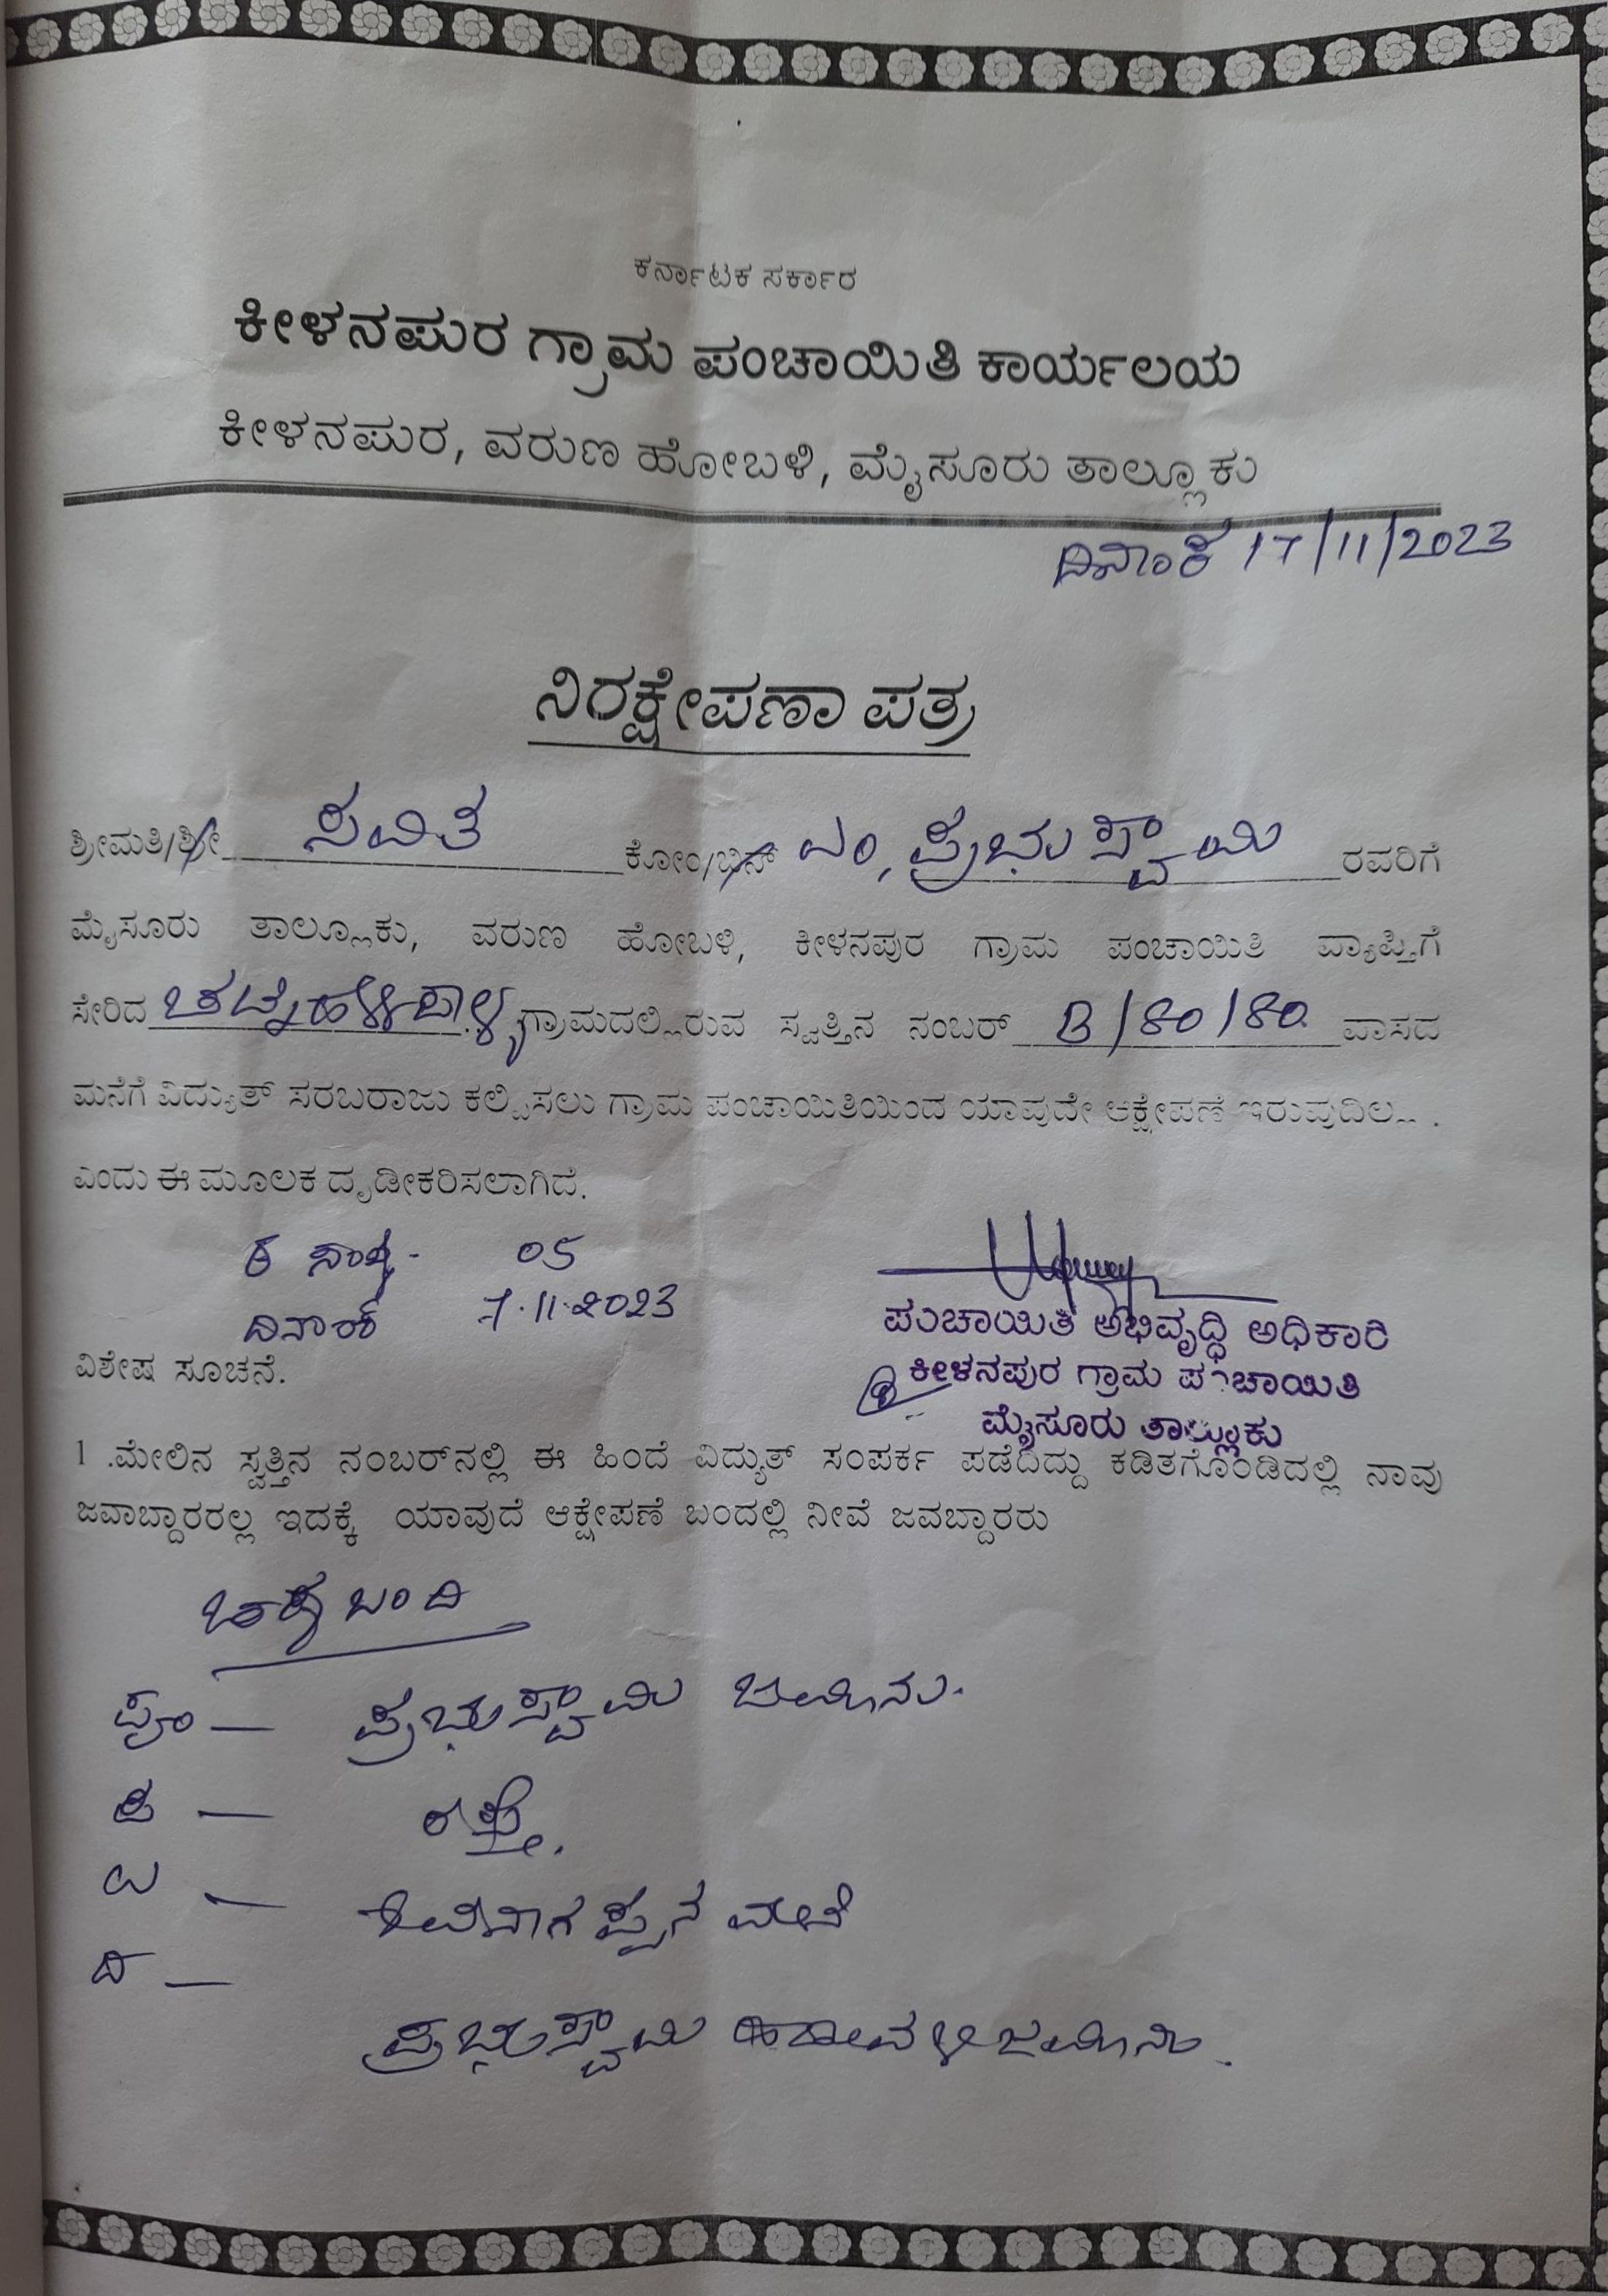 ಕರ್ನಾಟಕ ಸರ್ಕಾರ
ಕೀಳನಪುರ ಗ್ರಾಮ ಪಂಚಾಯಿತಿ ಕಾರ್ಯಲಯ
ಕೀಳನಪುರ, ವರುಣ ಹೋಬಳಿ, ಮೈಸೂರು ತಾಲ್ಲೂಕು
ದಿನಾಂಕ 17/11/2023
ನಿರಕ್ಷೇಪಣಾ ಪತ್ರ
ಶ್ರೀಮತಿ/ಶ್ರೀ ಸವಿತ ಕೋಂ/ಬಿನ್ ಎಂ, ಪ್ರಭುಸ್ವಾಮಿ ರವರಿಗೆ
ಮೈಸೂರು ತಾಲ್ಲೂಕು, ವರುಣ ಹೋಬಳಿ, ಕೀಳನಪುರ ಗ್ರಾಮ ಪಂಚಾಯಿತಿ ವ್ಯಾಪ್ತಿಗೆ
ಸೇರಿದ ಗ್ರಾಮದಲ್ಲಿರುವ ಸ್ವತ್ತಿನ ನಂಬರ್ B/80/80 ವಾಸದ
ಮನೆಗೆ ವಿದ್ಯುತ್ ಸರಬರಾಜು ಕಲ್ಪಿಸಲು ಗ್ರಾಮ ಪಂಚಾಯಿತಿಯಿಂದ ಯಾವುದೇ ಆಕ್ಷೇಪಣೆ ಇರುವುದಿಲ್ಲ .
ಎಂದು ಈ ಮೂಲಕ ದೃಡೀಕರಿಸಲಾಗಿದೆ.
ರ ಸಂಖ್ಯೆ- 05
ದಿನಾಂಕ 7.11.2023
ಪಂಚಾಯಿತಿ ಅಭಿವೃದ್ಧಿ ಅಧಿಕಾರಿ
ಕೀಳನಪುರ ಗ್ರಾಮ ಪಂಚಾಯಿತಿ
ಮೈಸೂರು ತಾಲ್ಲೂಕು
ವಿಶೇಷ ಸೂಚನೆ.
1 .ಮೇಲಿನ ಸ್ವತ್ತಿನ ನಂಬರ್‌ನಲ್ಲಿ ಈ ಹಿಂದೆ ವಿದ್ಯುತ್ ಸಂಪರ್ಕ ಪಡೆದಿದ್ದು ಕಡಿತಗೊಂಡಿದಲ್ಲಿ ನಾವು
ಜವಾಬ್ದಾರರಲ್ಲ ಇದಕ್ಕೆ ಯಾವುದೆ ಆಕ್ಷೇಪಣೆ ಬಂದಲ್ಲಿ ನೀವೆ ಜವಬ್ದಾರರು
ಚಕ್ಕಬಂದಿ
ಪೂ — ಪ್ರಭುಸ್ವಾಮಿ ಜಮೀನು.
ಪ — ರಸ್ತೆ.
ಉ — ಶಿವನಾಗಪ್ಪನ ಮನೆ
ದ —
ಪ್ರಭುಸ್ವಾಮಿ ಜಮೀನು.